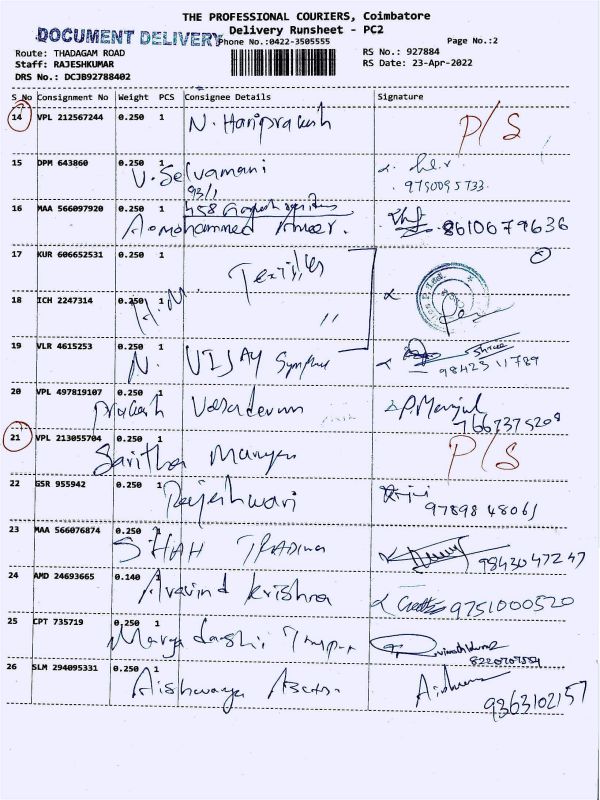 THE PROFESSIONAL COURIERS, Coimbatore
DOCUMENT DELIVERY
Delivery Runsheet - PC2
Phone No.:0422-3505555
Page No.:2
Route: THADAGAM ROAD
RS No.: 927884
Staff: RAJESHKUMAR
RS Date: 23-Apr-2022
DRS No.: DCJB92788402
S No Consignment No Weight PCS Consignee Details Signature
14 VPL 212567244 0.250 1 N. Hariprakash P/S
15 DPM 643860 0.250 1 V. Selvamani
93/1
16 MAA 566097920 0.250 1 8610679636
17 KUR 606652531 0.250 1 Textiles
18 ICH 2247314 0.250 1 "
19 VLR 4615253 0.250 1 N. VIJAY
9842311789
20 VPL 497819107 0.250 1 Prakash Vasudevan
7667375208
21 VPL 213055704 0.250 1 Saritha P/S
22 GSR 955942 0.250 1 Rajeshwari
9789848061
23 MAA 566076874 0.250 1 SHAH TRADING 9843047247
24 AMD 24693665 0.140 1 Aravind Krishna 9751000520
25 CPT 735719 0.250 1
26 SLM 294095331 0.250 1 Aishwarya
9363102157